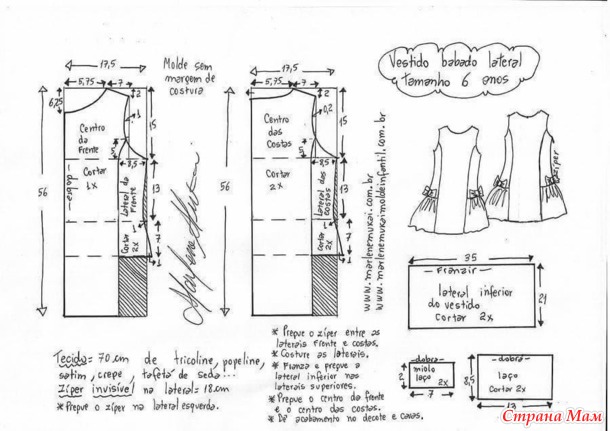 Molde sem
margem de
costura
Vestido babado lateral
tamanho 6 anos
17,5
5,75
7
2
6,25
1
15
5
8,5
56
13
7
1
1
Centro
da
Frente
Cortar
1x
dobra
Lateral da
Frente
Cortar
2x
17,5
5,75
7
2
0,2
15
5
8,5
56
13
7
1
1
Centro
das
Costas
Cortar
2x
lateral das
costas
Cortar
2x
www.marlenemukai.com.br
www.marlenemukaimoldeinfantil.com.br
zíper
35
- Franzir -
lateral inferior
do vestido
Cortar 2x
21
- dobra -
miolo
laço
2x
2
7
- dobra -
laço
Cortar 2x
8,5
13
Tecido = 70 cm de tricoline, popeline,
satim, crepe, tafetá de seda...
Zíper invisível na lateral = 18 cm
* Prepue o zíper na lateral esquerda.
* Prepue o zíper entre as
laterais frente e costas.
* Costure as laterais.
* Franza e prepue a
lateral inferior nas
laterais superiores.
* Prepue o centro da frente
e o centro das costas.
* Dê acabamento no decote e cavas.
Страна Мам